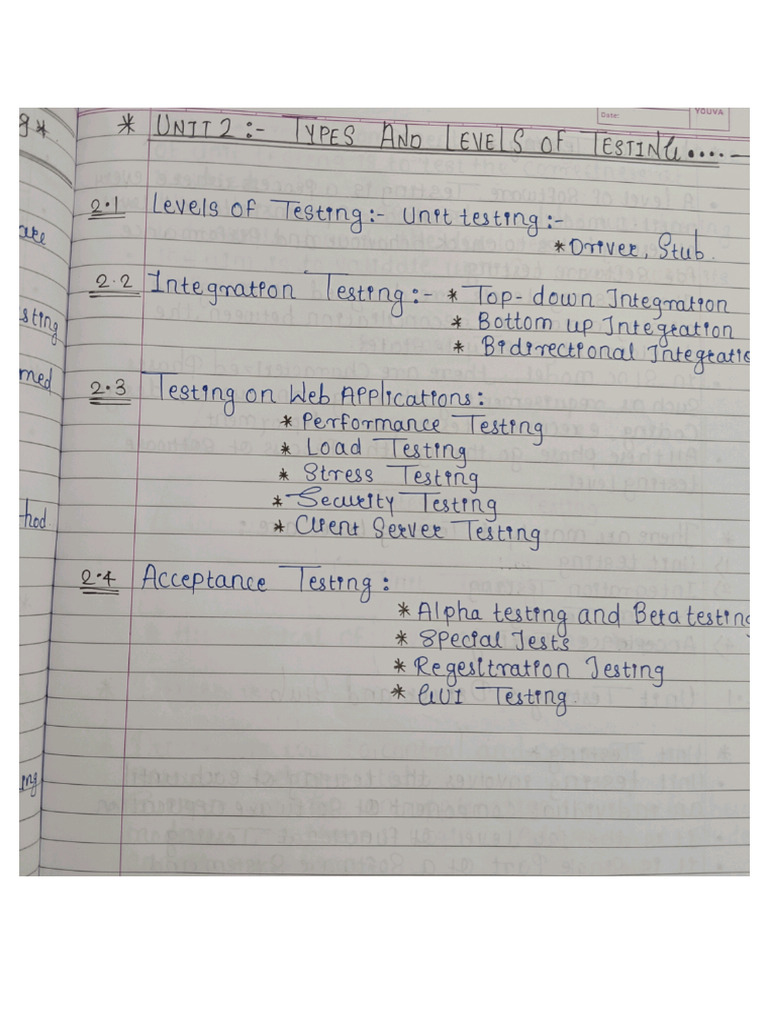 Date:
YOUVA
g*.
* UNIT 2 :- TYPES AND LEVELS OF TESTING....-
2.1 Levels of Testing :- Unit testing :-
* Driver, Stub.
2.2 Integration Testing :- * Top-down Integration
* Bottom up Integration
* Bidirectional Integratio
sting
med
2.3 Testing on Web Applications :
* Performance Testing
* Load Testing
* Stress Testing
* Security Testing
* Client Server Testing
hod
2.4 Acceptance Testing :
* Alpha testing and Beta testing
* Special Tests
* Regesitration Testing
* GUI Testing.
ing